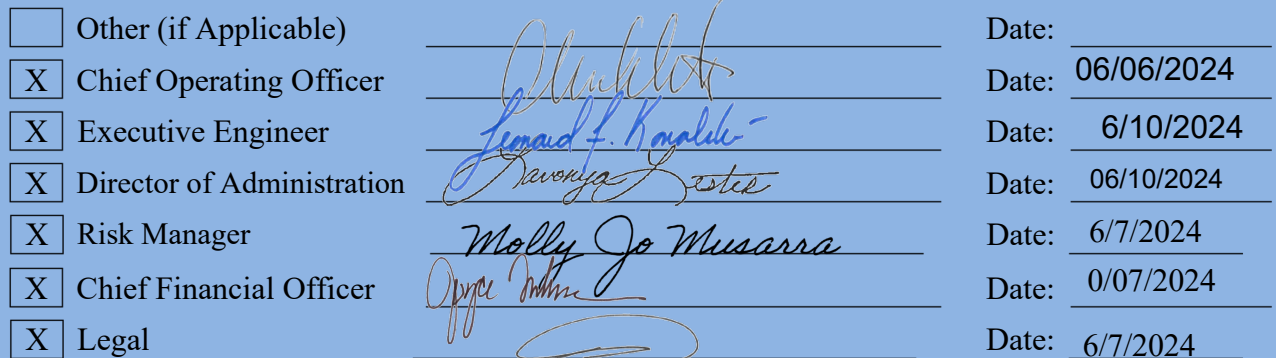 Other (if Applicable) Date:
X Chief Operating Officer Date: 06/06/2024
X Executive Engineer Leonard F. Date: 6/10/2024
X Director of Administration Lavonya Lester Date: 06/10/2024
X Risk Manager Molly Jo Musarra Date: 6/7/2024
X Chief Financial Officer Date: 0/07/2024
X Legal Date: 6/7/2024